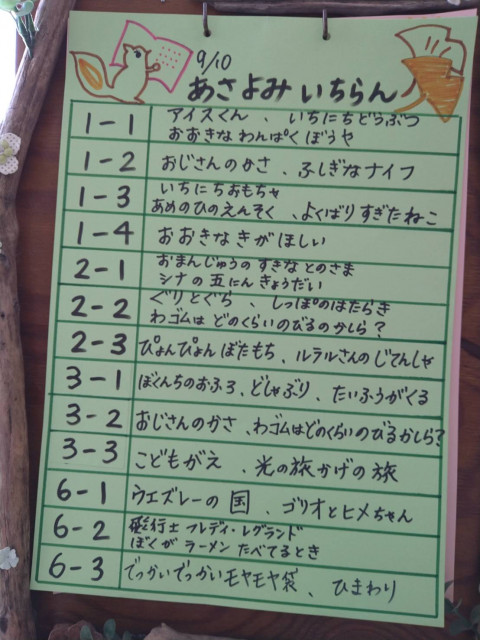 9/10
あさよみ いちらん
1-1 アイスくん 、いちにちどうぶつ
おおきな わんぱく ぼうや
1-2 おじさんのかさ 、ふしぎなナイフ
1-3 いちにちおもちゃ
あめのひのえんそく 、よくばりすぎたねこ
1-4 おおきなきがほしい
2-1 おまんじゅうの すきな とのさま
シナの 五にん きょうだい
2-2 ぐりとぐら 、しっぽのはたらき
わゴムは どのくらいのびるのかしら？
2-3 ぴょんぴょん ぼたもち 、ルラルさんの じてんしゃ
3-1 ぼくんちのおふろ 、どしゃぶり 、たいふうがくる
3-2 おじさんのかさ 、わゴムはどのくらいのびるかしら？
3-3 こどもがえ 、光の旅かげの旅
6-1 ウエズレーの 国 、ゴリオとヒメちゃん
6-2 飛行士 フレディ・レグランド
ぼくが ラーメン たべてるとき
6-3 でっかいでっかいモヤモヤ袋 、ひまわり